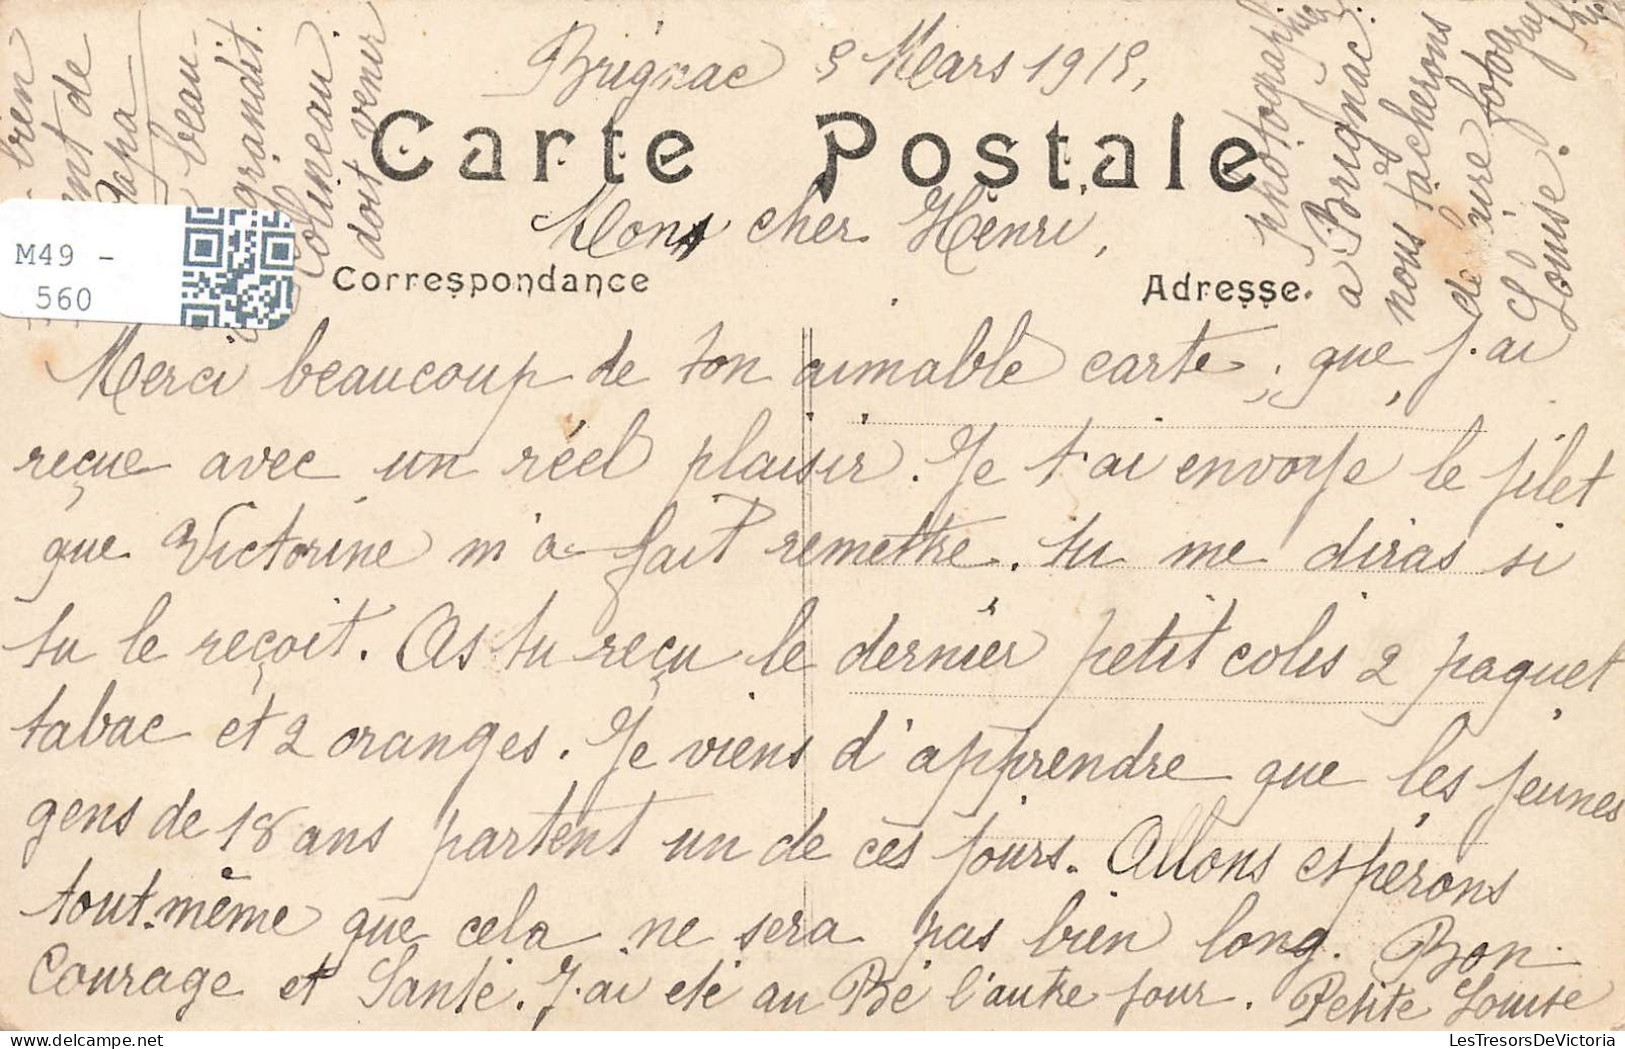 Brignac 5 Mars 1915,
Carte Postale
Mon cher Henri,
Correspondance
Adresse.
Merci beaucoup de ton aimable carte, que j'ai
reçue avec un réel plaisir. Je t'ai envoye le filet
que Victorine m'a fait remettre. tu me diras si
tu le reçoit. As tu reçu le dernier petit colis 2 paquet
tabac et 2 oranges. Je viens d'apprendre que les jeunes
gens de 18 ans partent un de ces jours. Allons espérons
tout même que cela ne sera pas bien long. Bon
Courage et Santé. J'ai été au Bé l'autre jour. Petite Louise
bien
de
Papa
beau-
grandit.
Colineau
doit venir
photographier
a Brignac.
nous tâcherons
de
Louise.
M49 -
560
LesTresorsDeVictoria.com